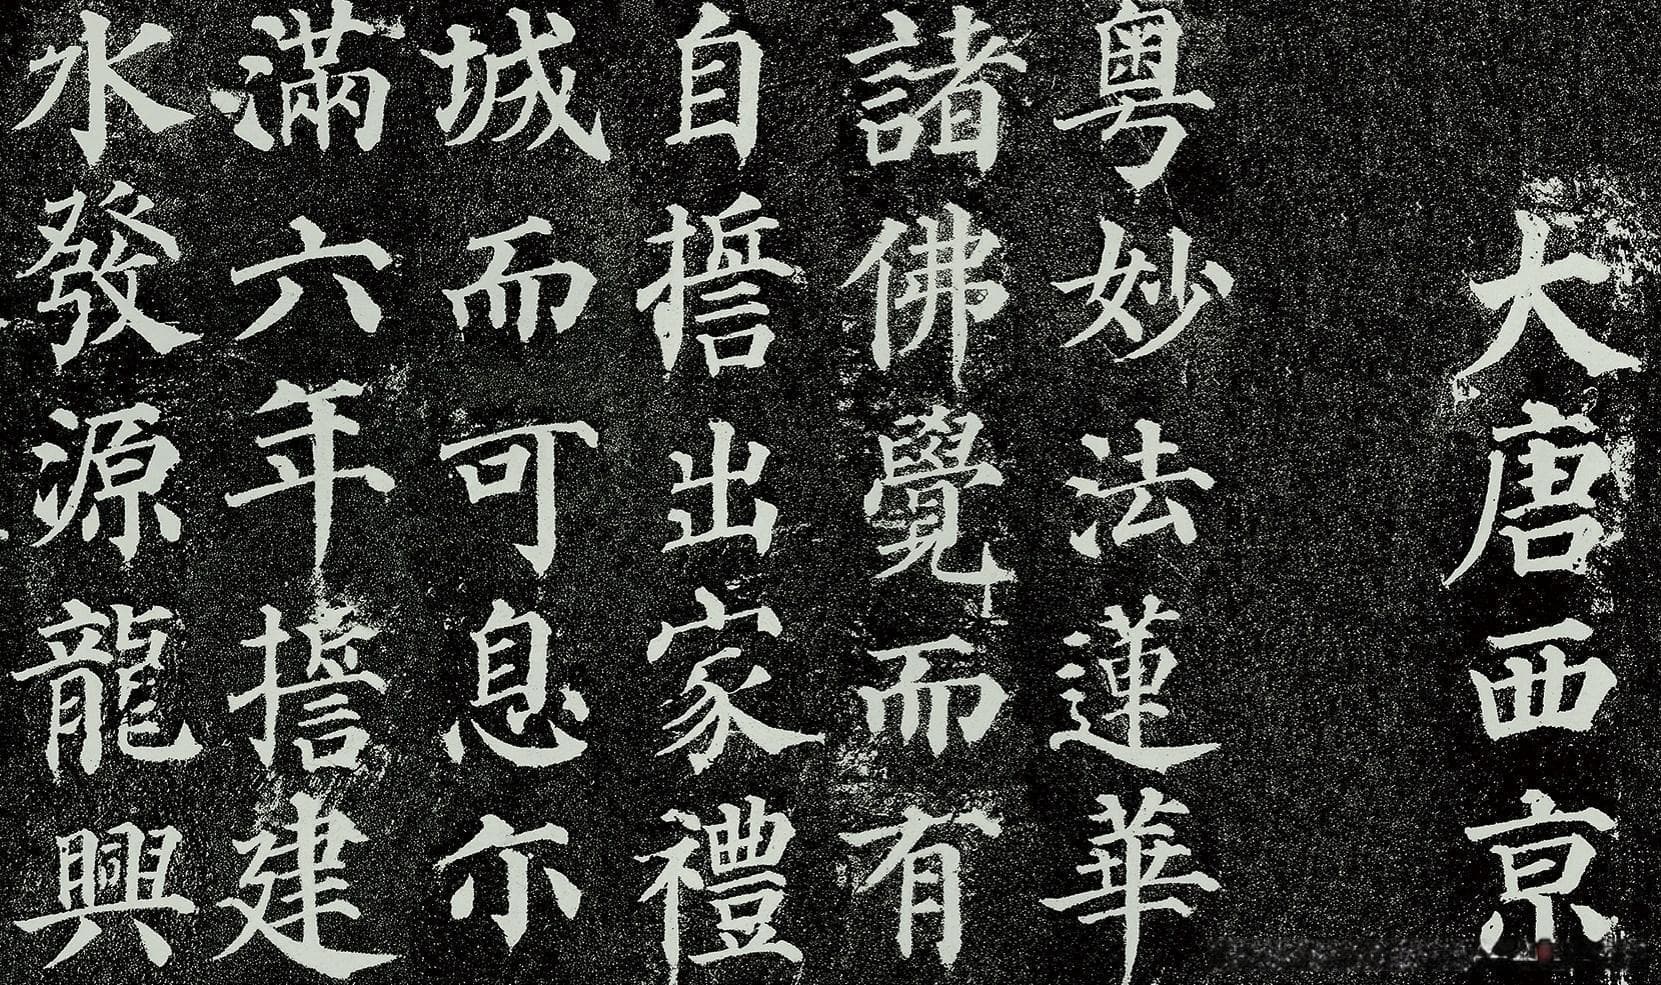 大唐西亰
粤妙法蓮華
諸佛覺而有
自誓出家禮
城而可息尒
滿六年誓建
水發源龍興